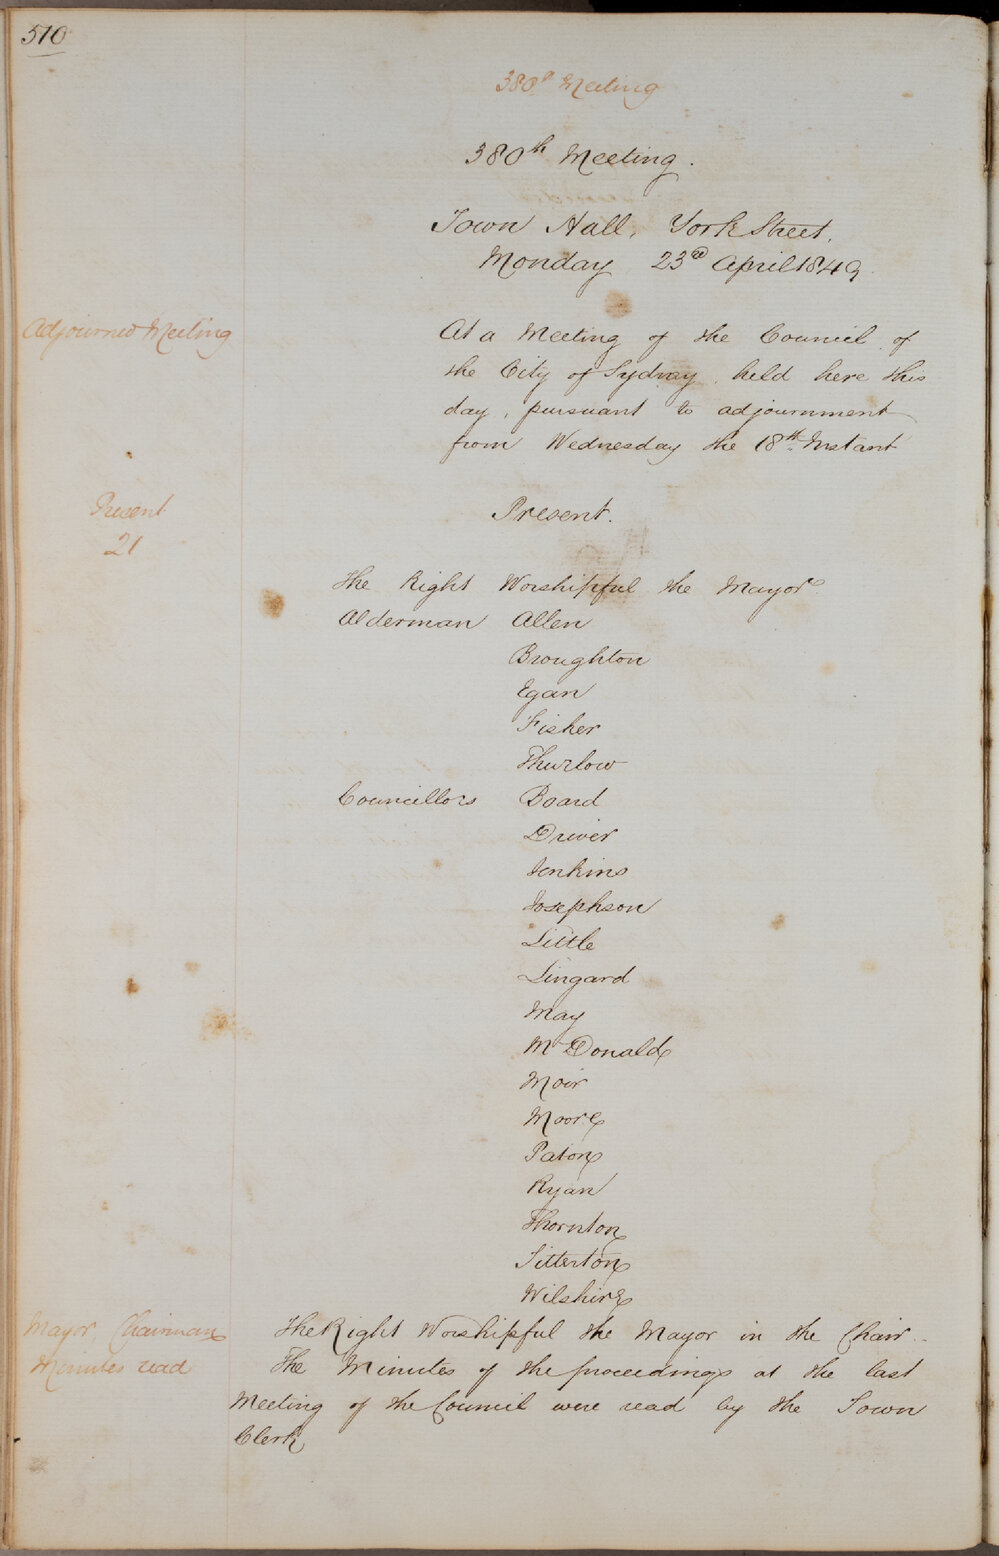 510
380th Meeting
380th Meeting.
Town Hall, York Street,
Monday 23rd April 1849.
Adjourned Meeting
At a Meeting of the Council of
the City of Sydney, held here this
day, pursuant to adjournment
from Wednesday the 18th Instant
Present
21
Present.
The Right Worshipful the Mayor
Alderman Allen
Broughton
Egan
Fisher
Thurlow
Councillors Board
Driver
Jenkins
Josephson
Little
Lingard
May
McDonald
Moir
Moore
Paton
Ryan
Thornton
Titterton
Wilshire
Mayor, Chairman
The Right Worshipful the Mayor in the Chair.
Minutes read
The Minutes of the proceedings at the last
Meeting of the Council were read by the Town
Clerk